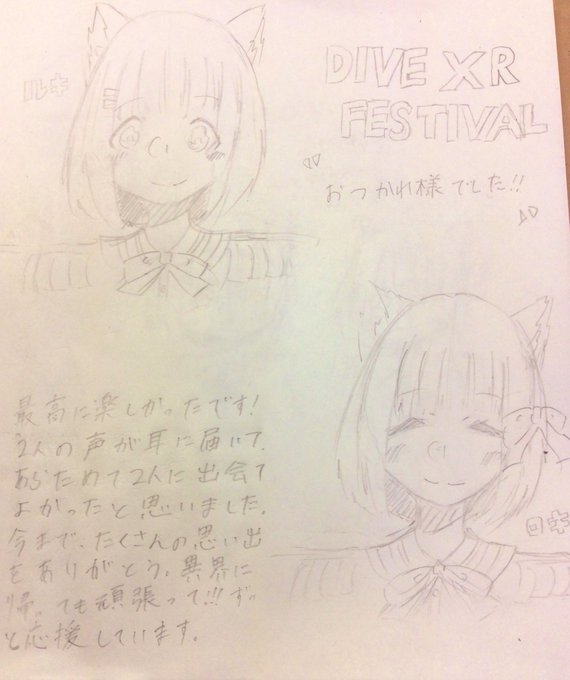 ルキ
DIVE XR
FESTIVAL
おつかれ様でした!!
最高に楽しかったです!
2人の声が耳に届いて、
あらためて2人に出会て
よかったと思いました。
今まで、たくさんの思い出
をありがとう。異界に
帰っても頑張って!!ずっ
と応援しています。
ロキ